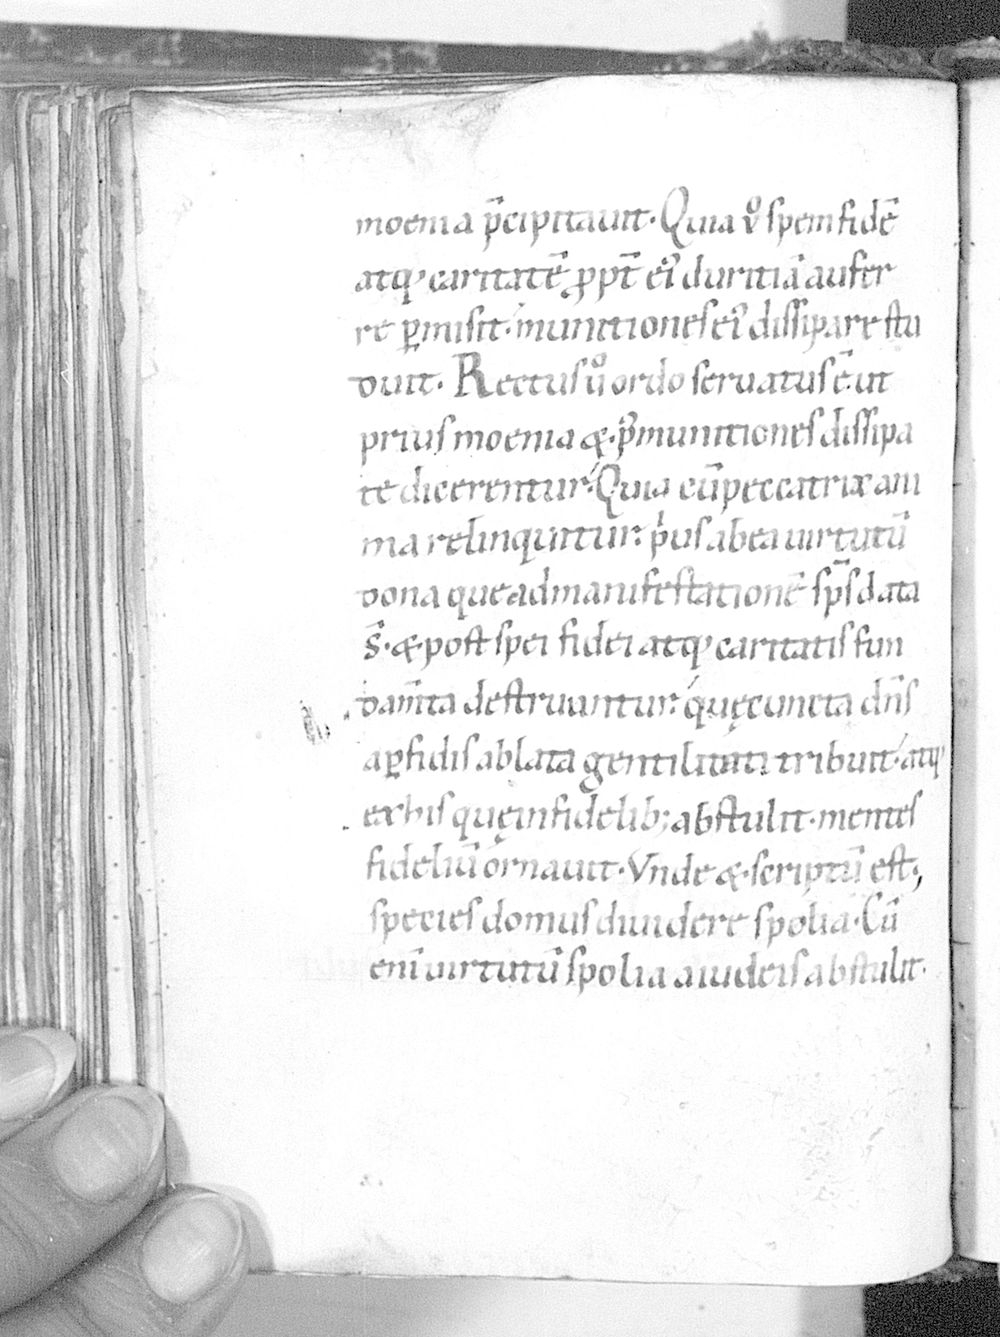 moenia p̄cipitauit· Quia v̊ spem fidē
atq; caritatē ꝓpt̄ ei᷒ duritiā aufer
re ꝑmisit· munitiones ei᷒ dissipare stu
duit· Rectus ů ordo seruatus ē· ut
prius moenia &· p̊munitiones dissipa
te dicerentur· Quia cū peccatrix ani
ma relinquitur· p̍us ab ea uirtutū
dona que ad manifestationē sp̄s data
s̄· & post spei fidei atq; caritatis fun
dam̄ta destruuntur· quę cuncta dn̄s
a ꝑfidis ablata gentilitati tribuit· atq;
ex his quę infidelib; abstulit· mentes
fideliū ornauit· Vnde &· scriptū est,
species domus diuidere spolia· Cū
enī uirtutū spolia a iudeis abstulit·